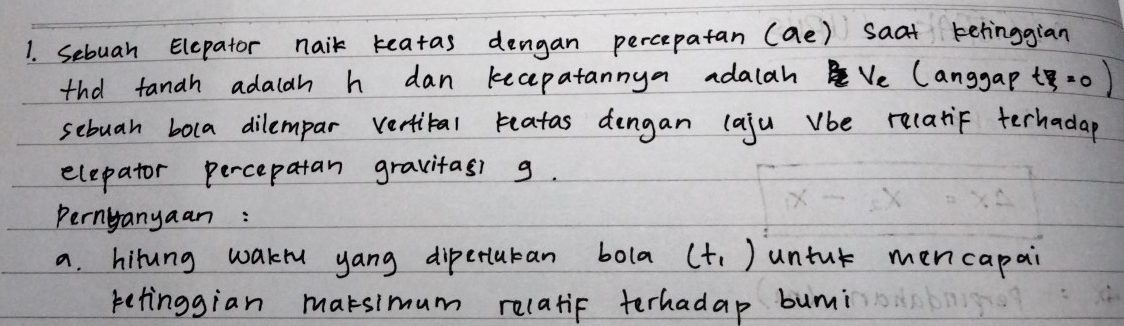 1. Sebuah Elepator naik keatas dengan percepatan (ae) saat ketinggian
thd tanah adalah h dan kecepatannya adalah Ve (anggap t=0)
sebuah bola dilempar vertikal keatas dengan laju Vbe relatif terhadap
elepator percepatan gravitasi g.
Pernyanyaan :
a. hitung waktu yang diperlukan bola (t₁) untuk mencapai
ketinggian maksimum relatif terhadap bumi